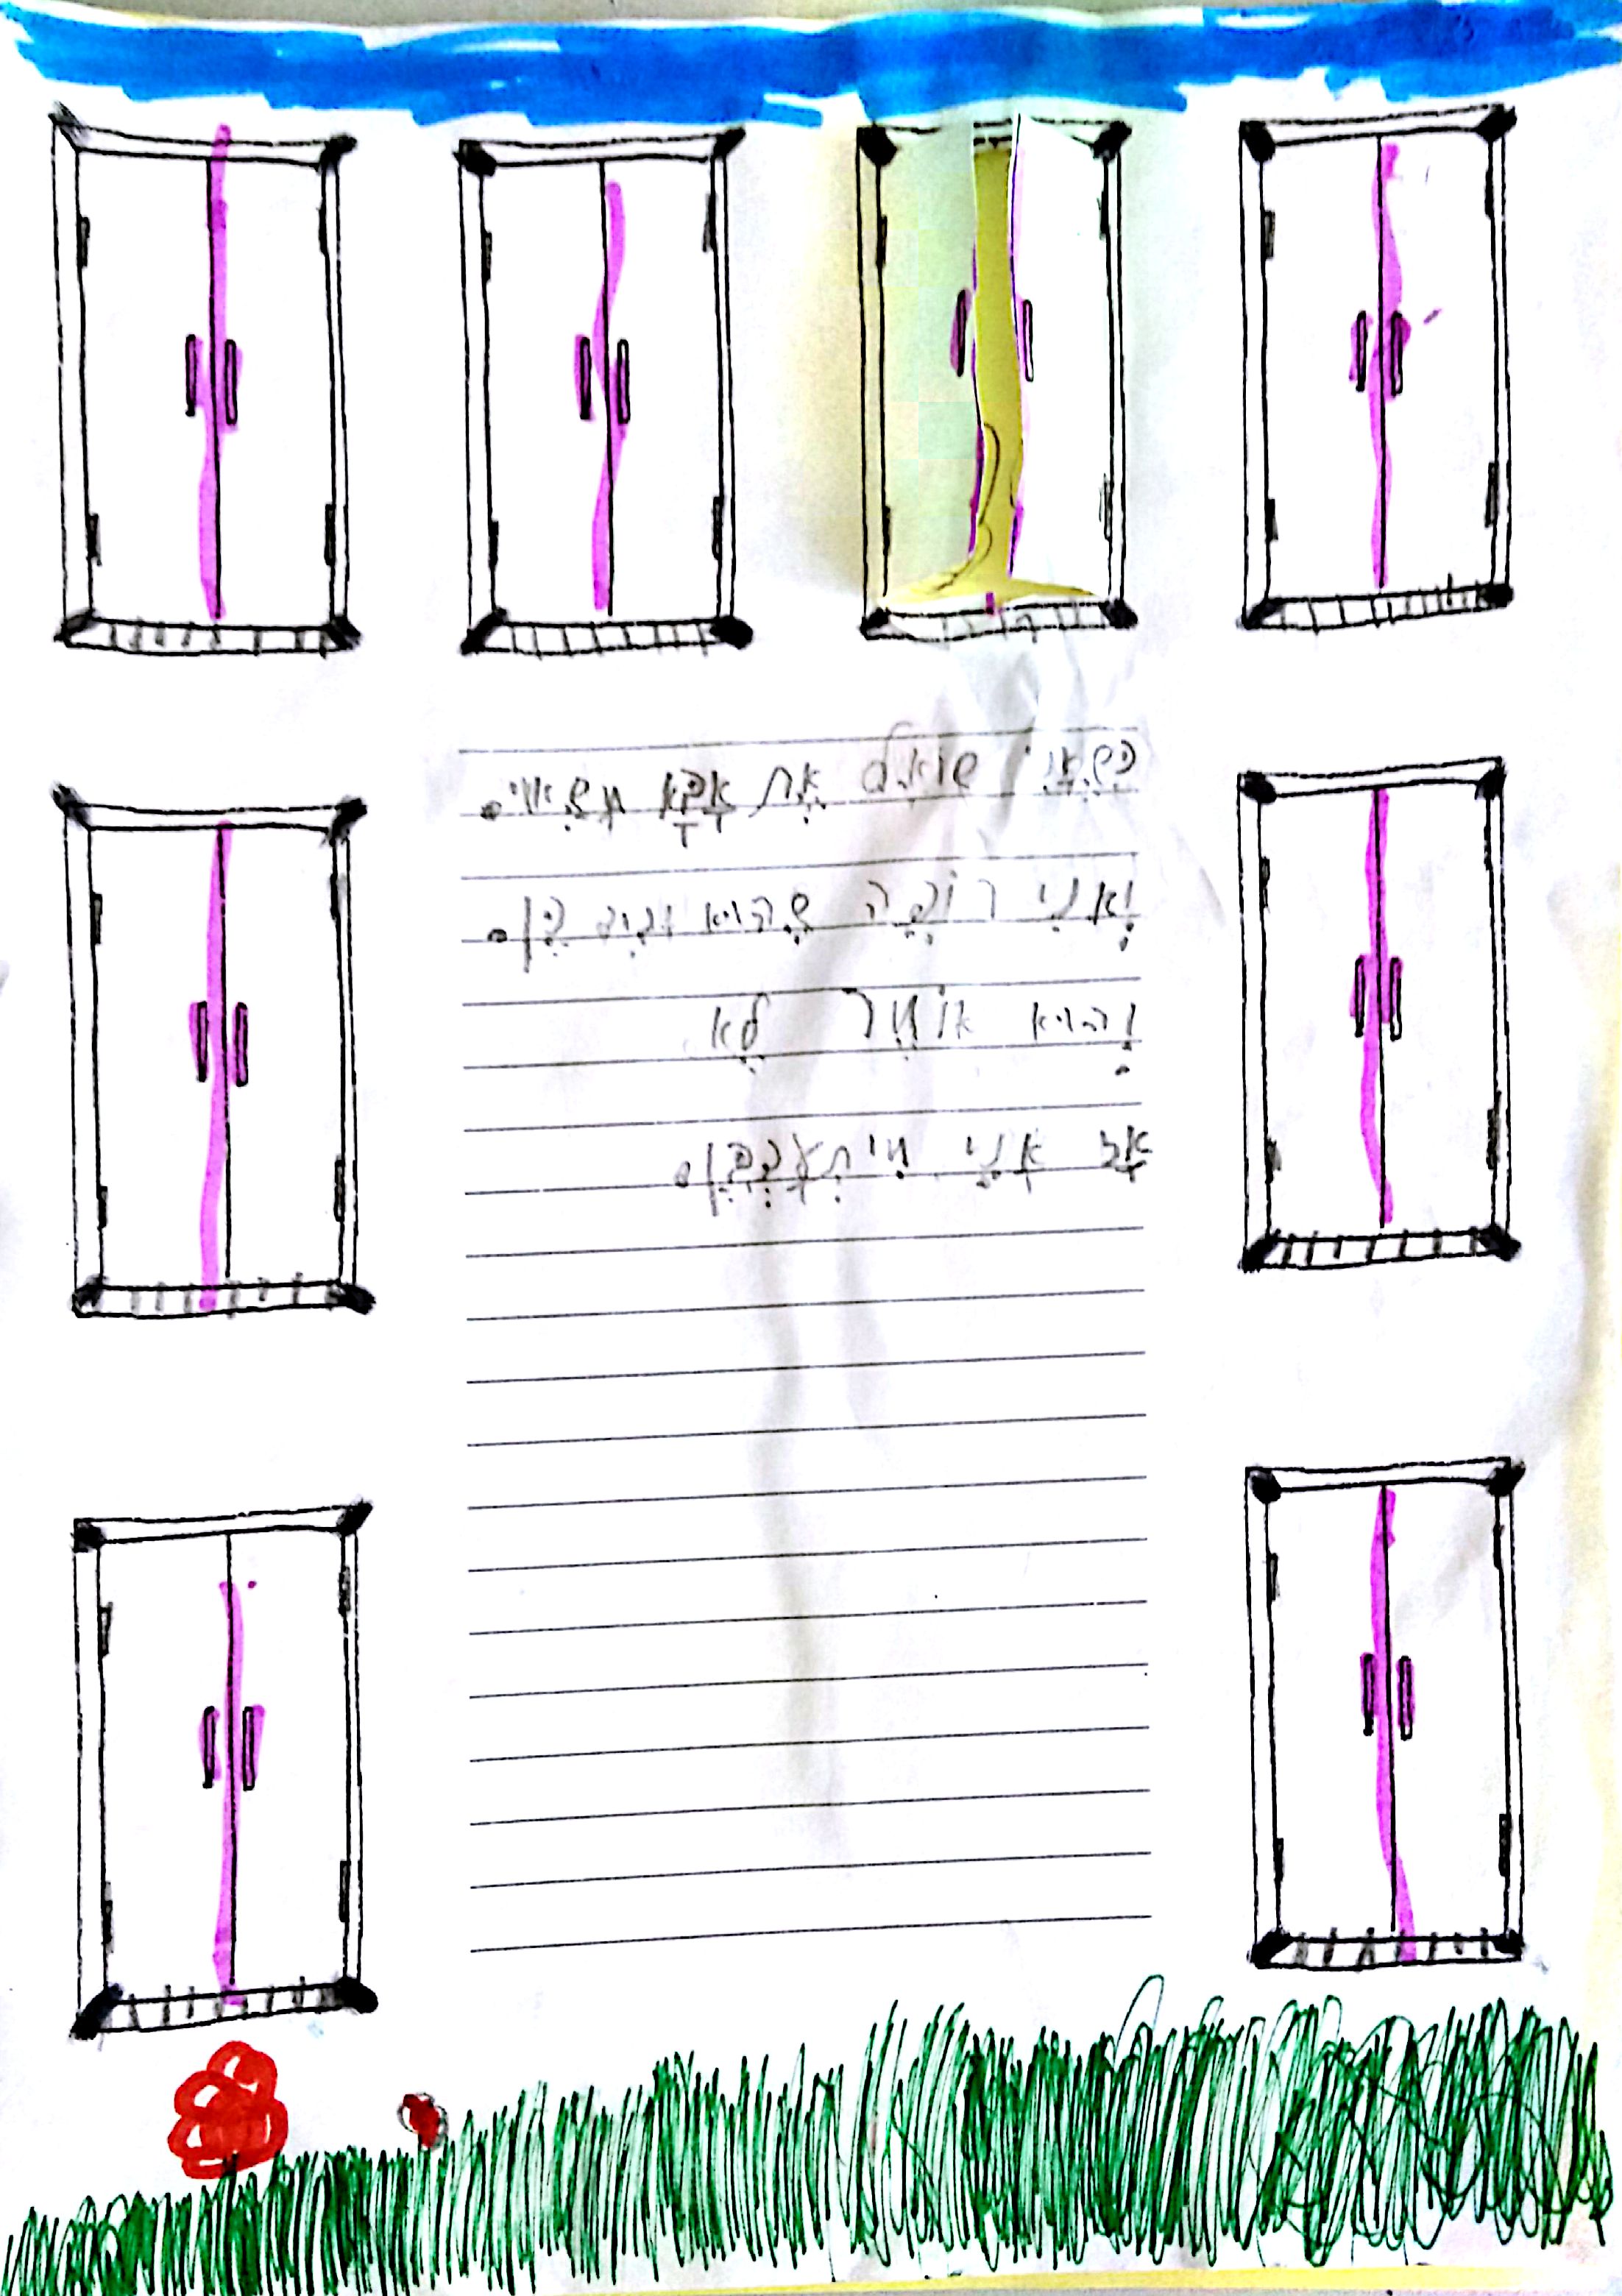 כשאני שואל את אבא
ואני רוצה שהוא יגיד כן.
והוא אומר לא
אז אני מיתעצבן.